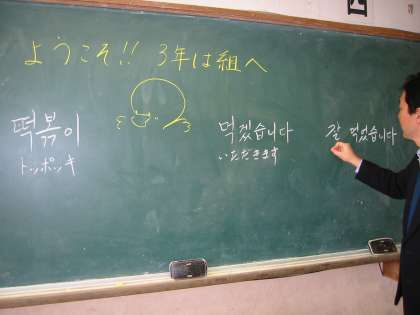 ようこそ!! 3年は組へ
떡볶이
トッポッキ
먹겠습니다
いただきます
잘 먹었습니다